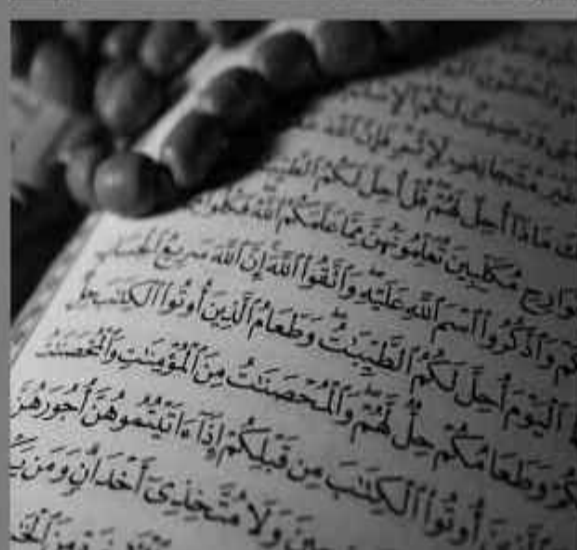 ورضيت لكم الإسلـ
غير متجانف لإثم فإن الله
ماذا أحل لهم قل أحل لكم الطيبـ
مكلبين تعلمونهن مما علمكم الله فكلوا
واذكروا اسم الله عليه واتقوا الله إن الله سريع الحساب
اليوم أحل لكم الطيبـت وطعام الذين أوتوا الكتـب حل
وطعامكم حل لهم والمحصنـت من المؤمنـت والمحصنـت
أوتوا الكتـب من قبلكم إذا ءاتيتموهن أجورهن
ولا متخذي أخدان ومن